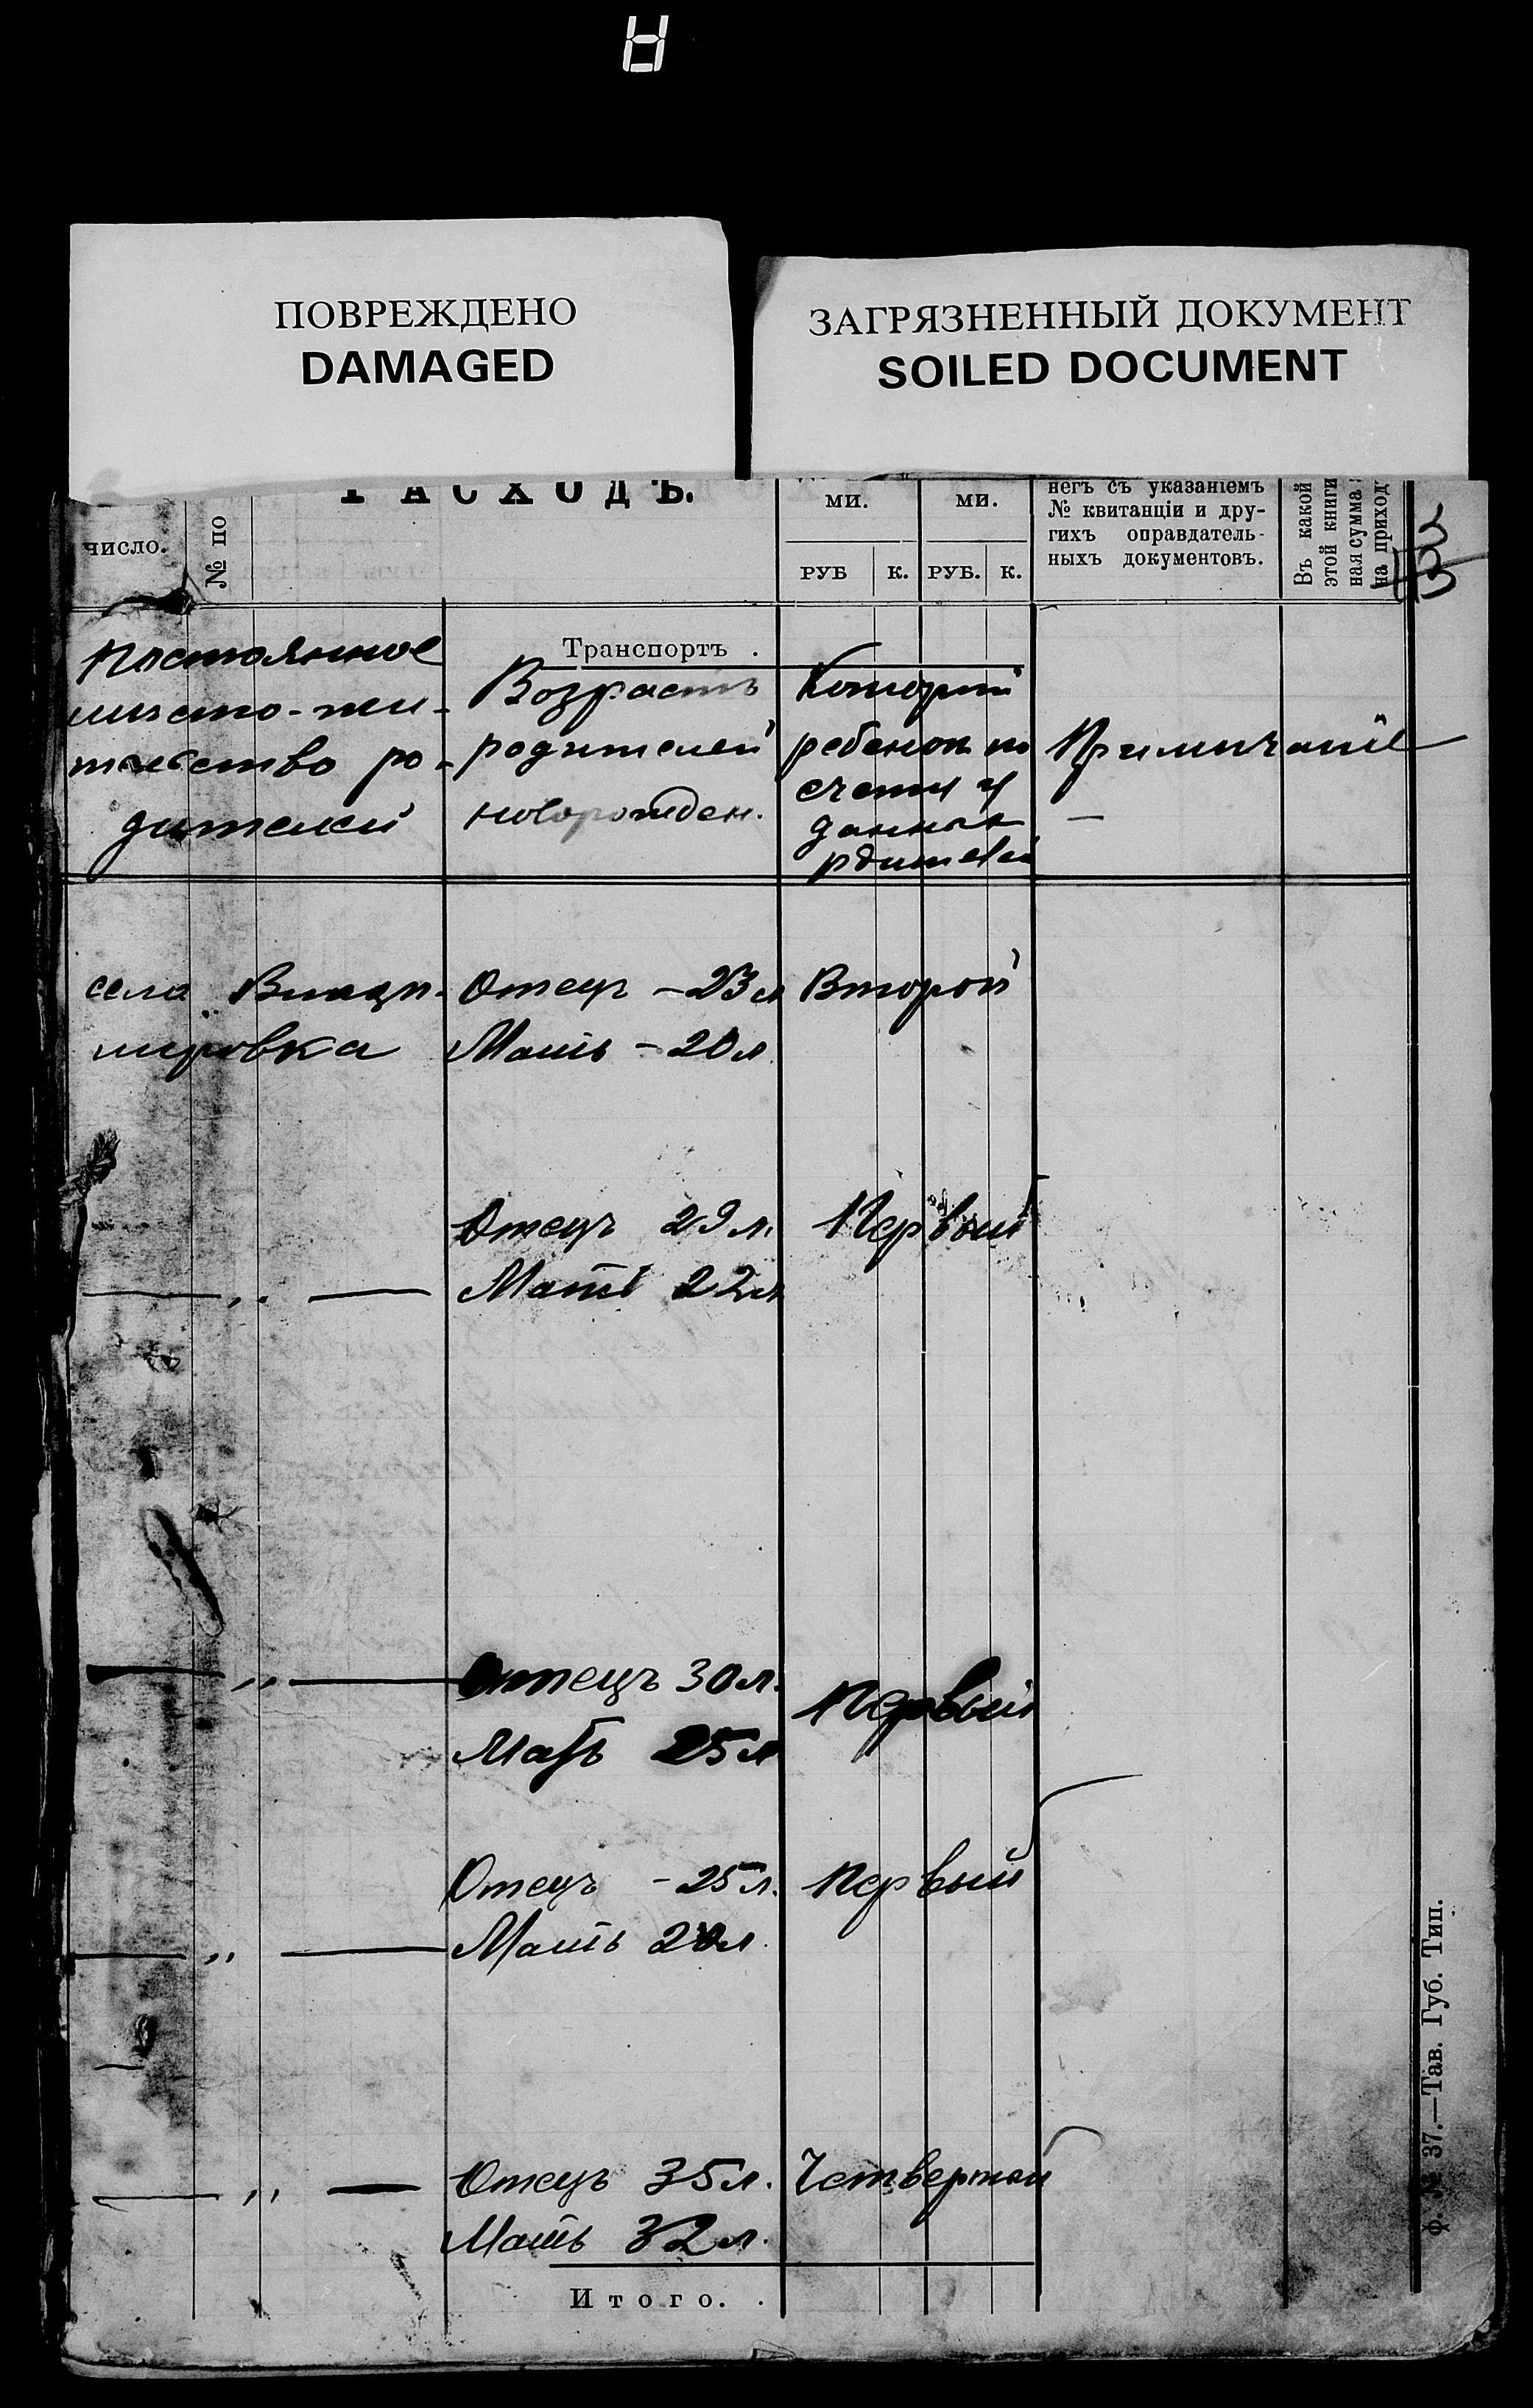 ПОВРЕЖДЕНО
DAMAGED
ЗАГРЯЗНЕННЫЙ ДОКУМЕНТ
SOILED DOCUMENT
РАСХОДЪ.
число.
№ по
ми.
ми.
РУБ
К.
РУБ.
К.
негъ съ указаніемъ
№ квитанціи и дру-
гихъ оправдатель-
ныхъ документовъ.
Въ какой
этой книги
ная сумма
на приход
Транспортъ .
Постоянное
место-жи-
тельство ро-
дителей
Возрастъ
родителей
новорожден.
Который
ребенок по
счету у
данных
рдителей
Примичание
села Влади-
мировка
Отецъ - 23 л
Мать - 20 л
Второй
— „ —
Отецъ 29 л.
Мать 22 л
Первый
— „ —
Отецъ 30 л.
Мать 25 л
Первый
— „ —
Отецъ - 25 л.
Мать 20 л.
Первый
— „ —
Отецъ 35 л.
Мать 32 л.
Четвертой
Итого. .
Ф. № 37.—Тав. Губ. Тип.